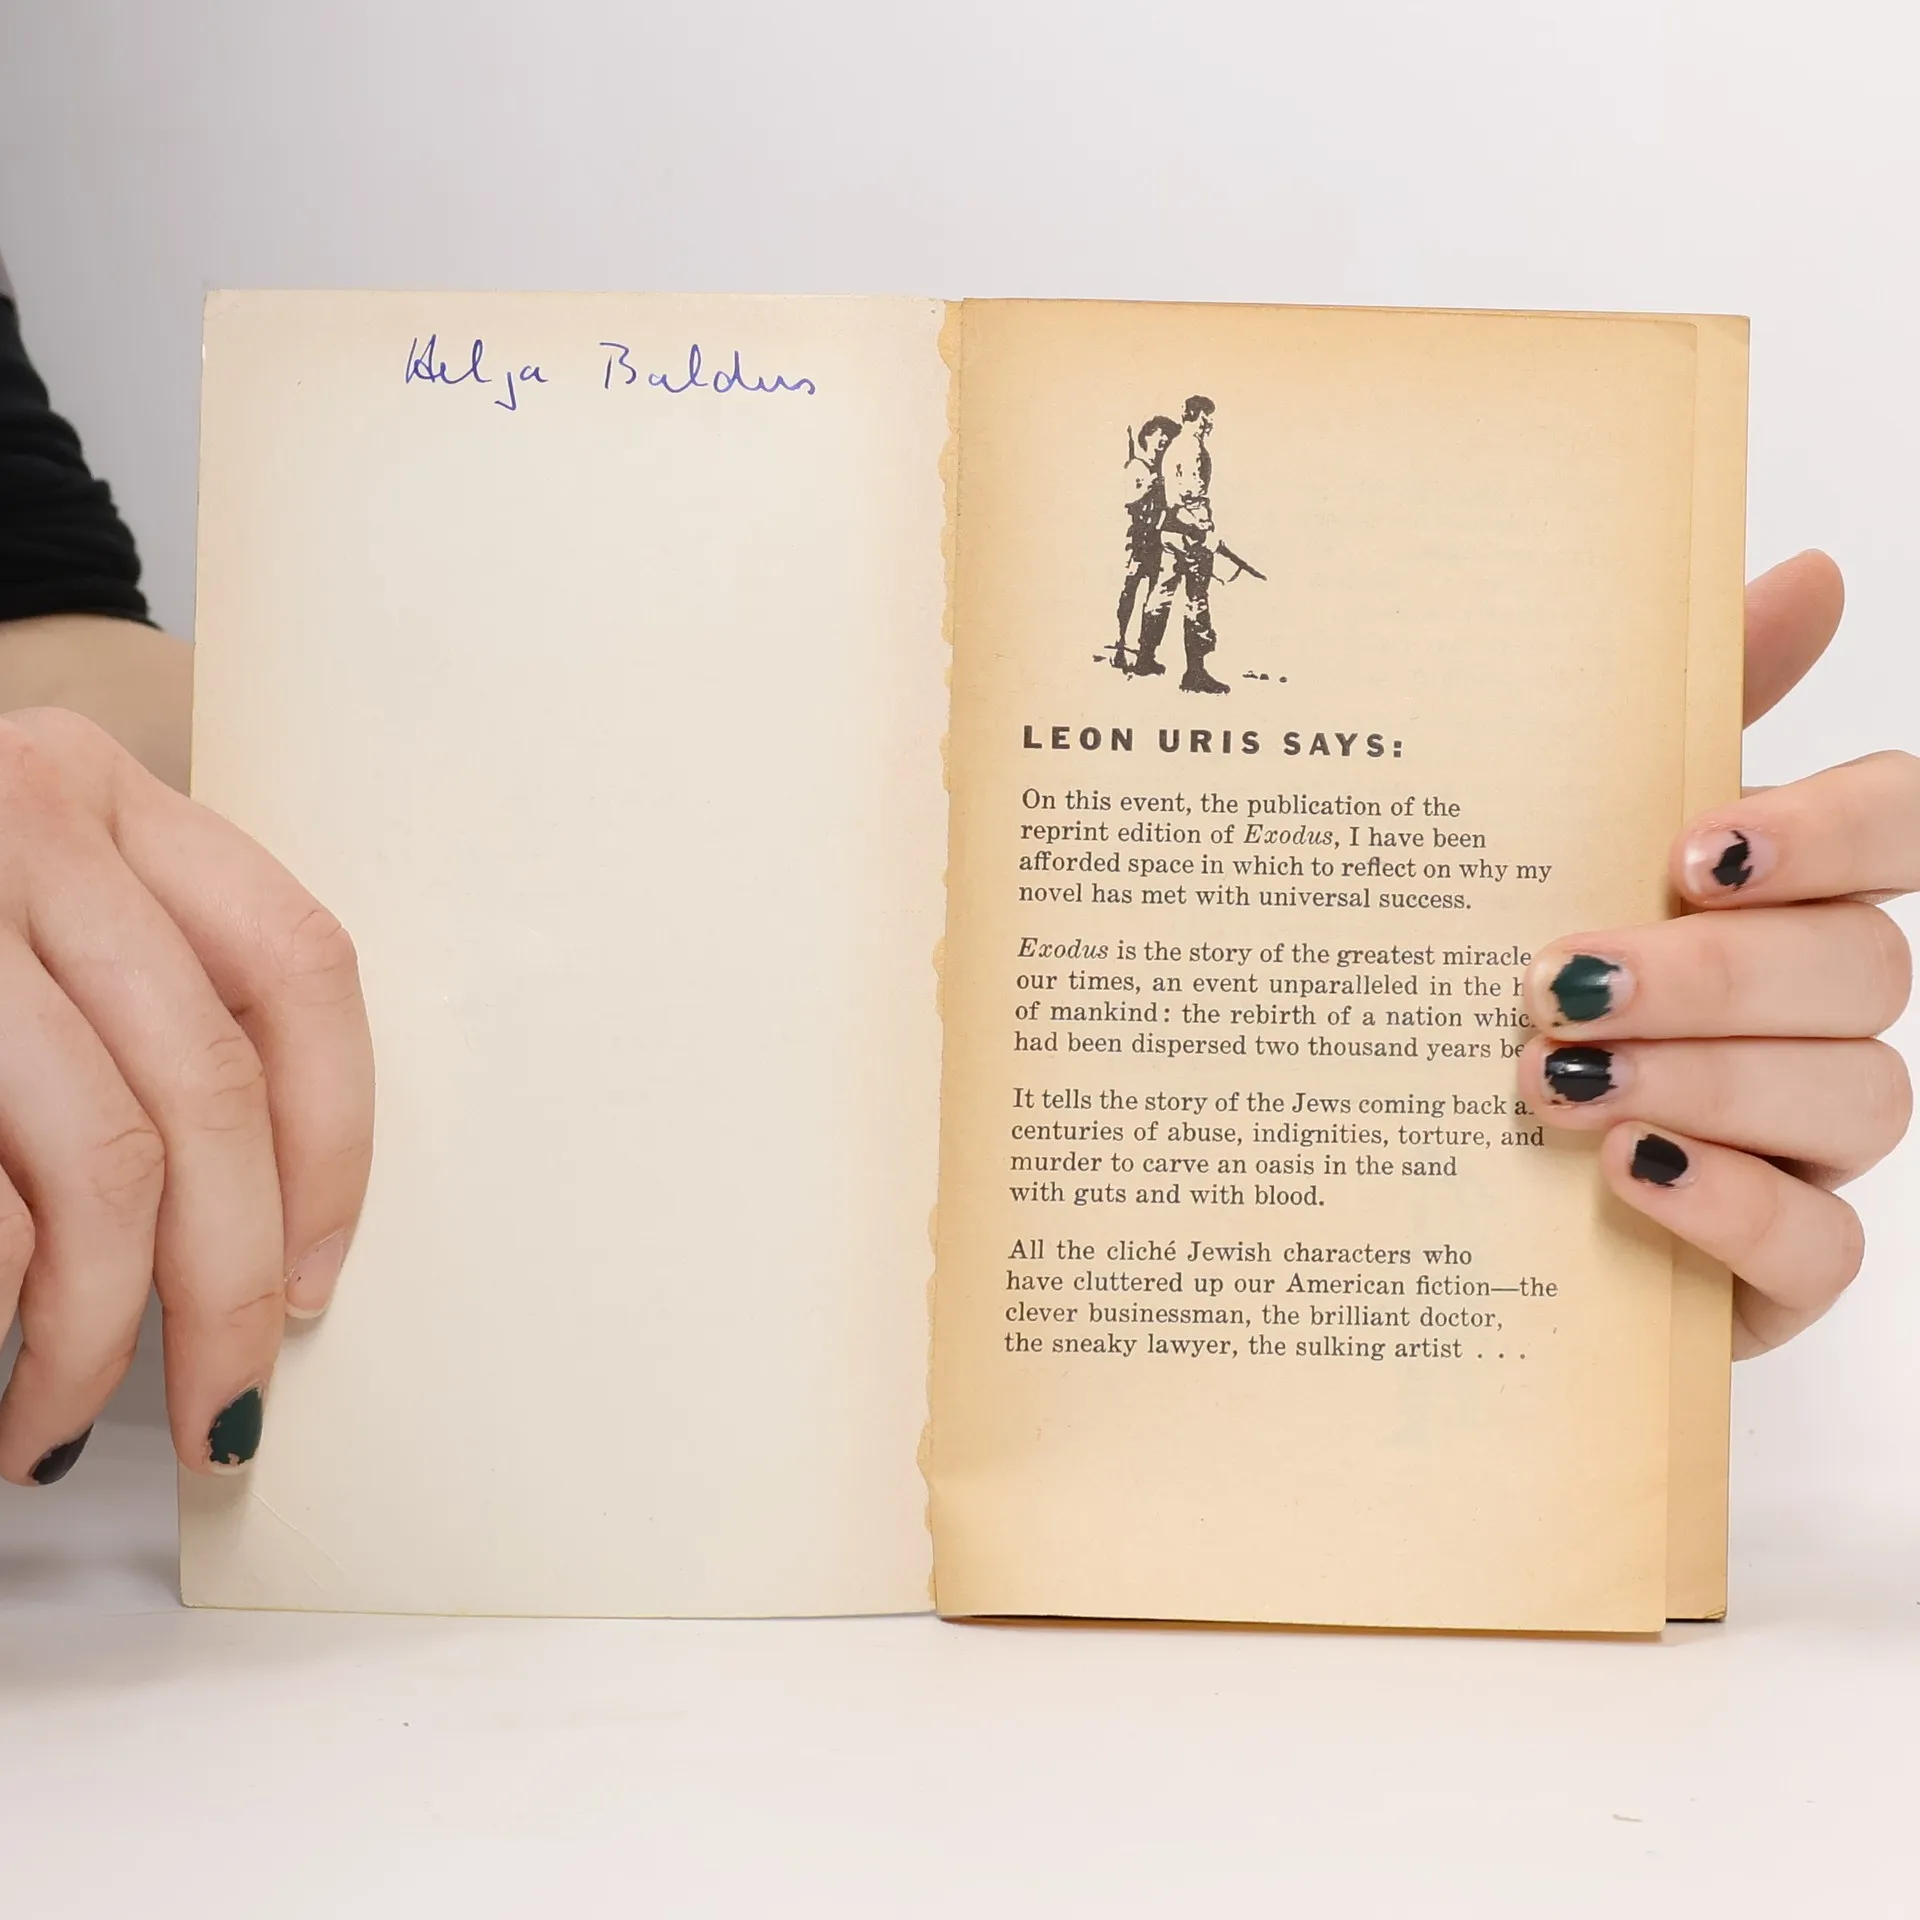 Helga Baldus
LEON URIS SAYS:
On this event, the publication of the
reprint edition of Exodus, I have been
afforded space in which to reflect on why my
novel has met with universal success.
Exodus is the story of the greatest miracle
our times, an event unparalleled in the
of mankind: the rebirth of a nation
had been dispersed two thousand years
It tells the story of the Jews coming back
centuries of abuse, indignities, torture, and
murder to carve an oasis in the sand
with guts and with blood.
All the cliché Jewish characters who
have cluttered up our American fiction—the
clever businessman, the brilliant doctor,
the sneaky lawyer, the sulking artist . . .